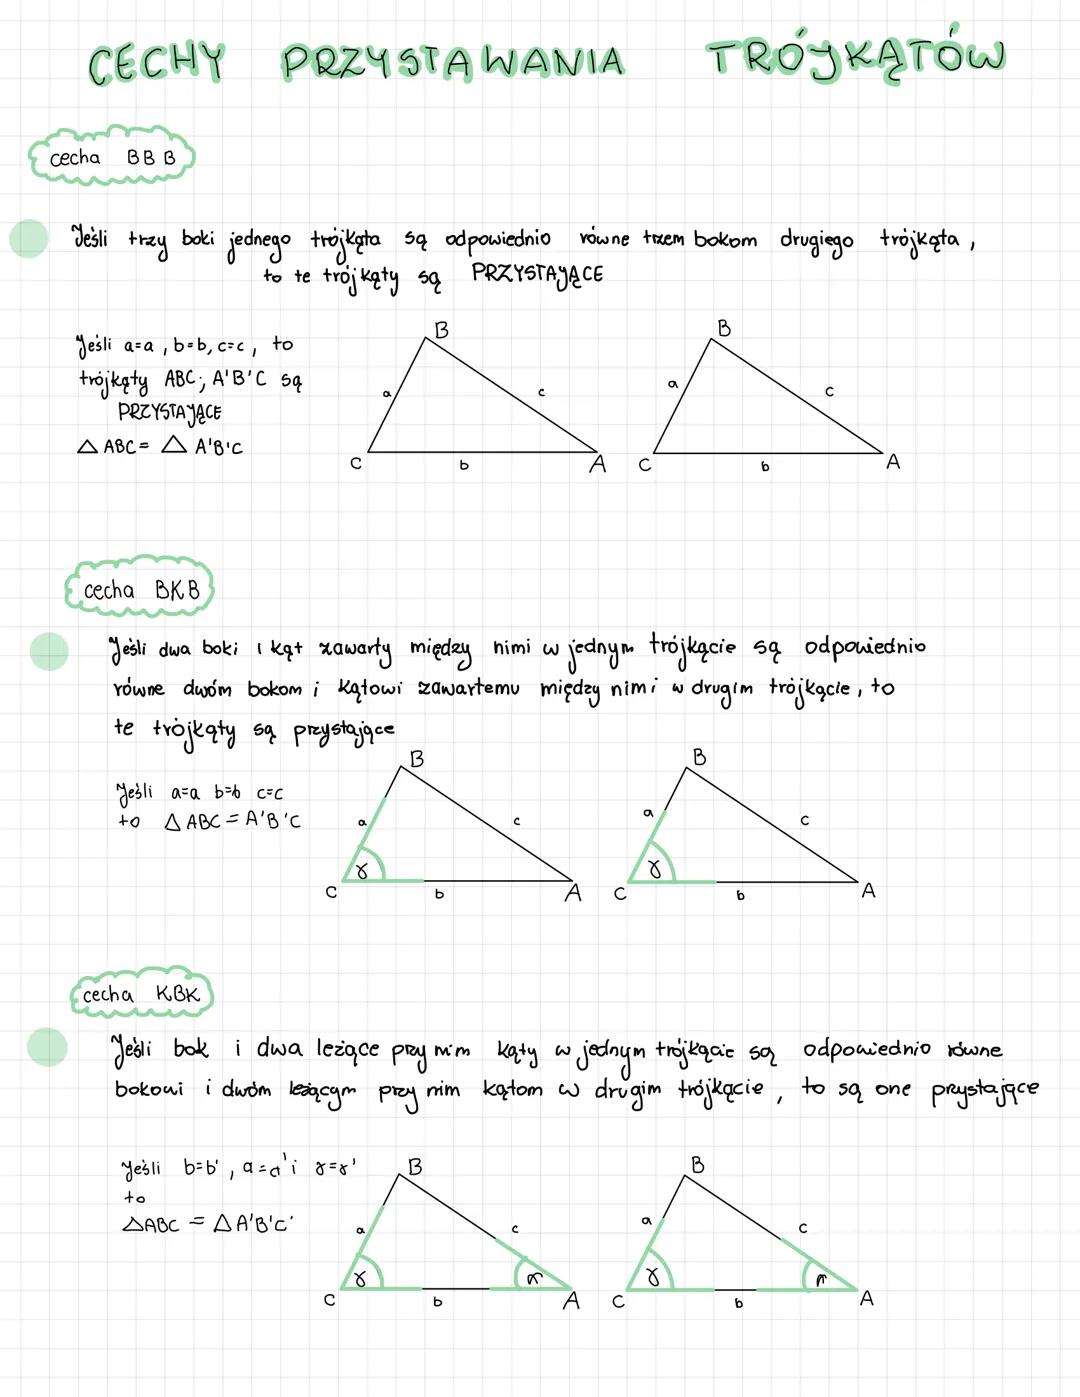 CECHY PRZYSTAWANIA TRÓJKĄTÓW
cecha BBB
Jeśli trzy boki jednego trójkąta są odpowiednio równe trzem bokom drugiego trójkąta,
to te trójkąty są PRZYSTAJĄCE
Jeśli a=a, b=b, c=c, to
trójkąty ABC; A'B'C są
PRZYSTAJĄCE
△ ABC = △ A'B'C
B
a
c
C
b
A
B
a
c
C
b
A
cecha BKB
Jeśli dwa boki i kąt zawarty między nimi w jednym trójkącie są odpowiednio
równe dwóm bokom i kątowi zawartemu między nimi w drugim trójkącie, to
te trójkąty są przystające
Jeśli a=a b=b c=c
to △ ABC = A'B'C
B
a
c
γ
C
b
A
B
a
c
γ
C
b
A
cecha KBK
Jeśli bok i dwa leżące przy nim kąty w jednym trójkącie są odpowiednio równe
bokowi i dwóm leżącym przy nim kątom w drugim trójkącie, to są one prystające
Jeśli b=b', a=a' i γ=γ'
to
△ABC = △A'B'C'
B
a
c
γ
C
b
A
B
a
c
γ
C
b
A